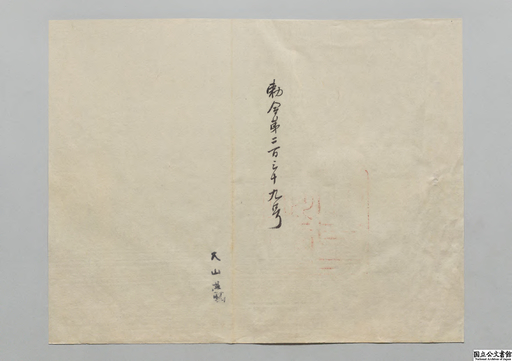 勅令第二百三十九号
国立公文書館
National Archives of Japan